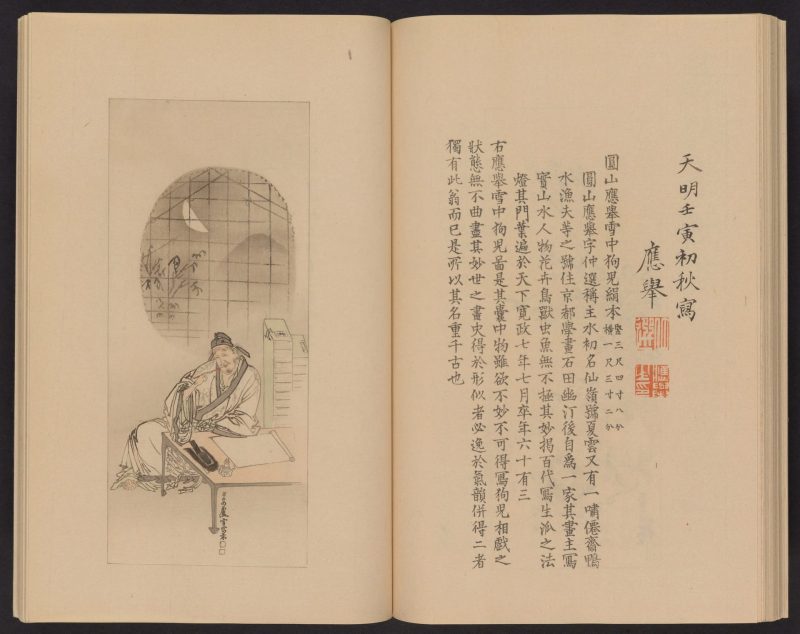 天明壬寅初秋寫
應舉
圓山應舉雪中狗兒絹本豎三尺四寸八分橫一尺三寸二分
圓山應舉字仲選稱主水初名仙嶺號夏雲又有一嘯僊齋鴨
水漁夫等之號住京都學畫石田幽汀後自爲一家其畫主寫
實山水人物花卉鳥獸虫魚無不極其妙揭百代寫生派之法
燈其門葉遍於天下寬政七年七月卒年六十有三
右應舉雪中狗兒啚是其囊中物雖欲不妙不可得寫狗兒相戲之
狀態無不曲盡其妙世之畫史得於形似者必逸於氣韻併得二者
獨有此翁而已是所以其名重千古也